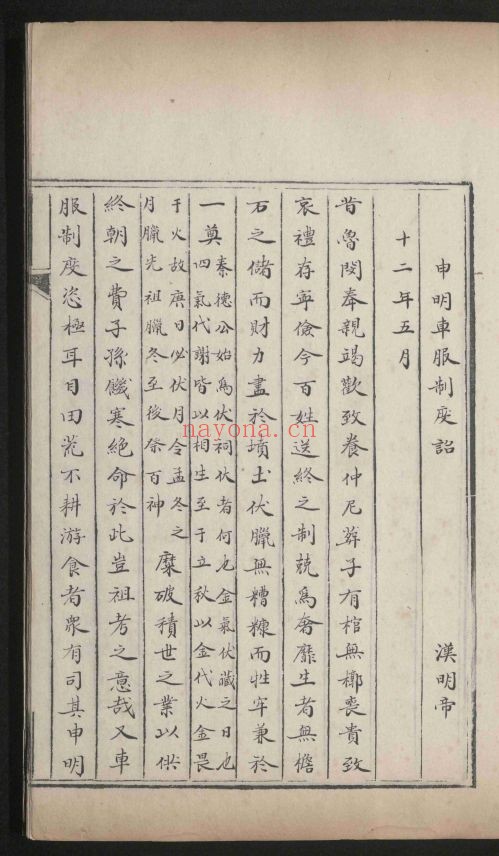 申明車服制度詔　漢明帝
十二年五月
昔魯閔奉親竭歡致養仲尼葬子有棺無槨喪貴致
哀禮存寧儉今百姓送終之制競爲奢靡生者無檐
石之儲而財力盡於墳土伏臘無糟糠而牲牢兼於
一奠秦德公始爲伏祠伏者何也金氣伏藏之日也
四氣代謝皆以相生至于立秋以金代火金畏
于火故庚日必伏月令孟冬之
月臘先祖臘冬至後祭百神
糜破積世之業以供
終朝之費子孫饑寒絕命於此豈祖考之意哉又車
服制度恣極耳目田荒不耕游食者眾有司其申明
nayona.cn